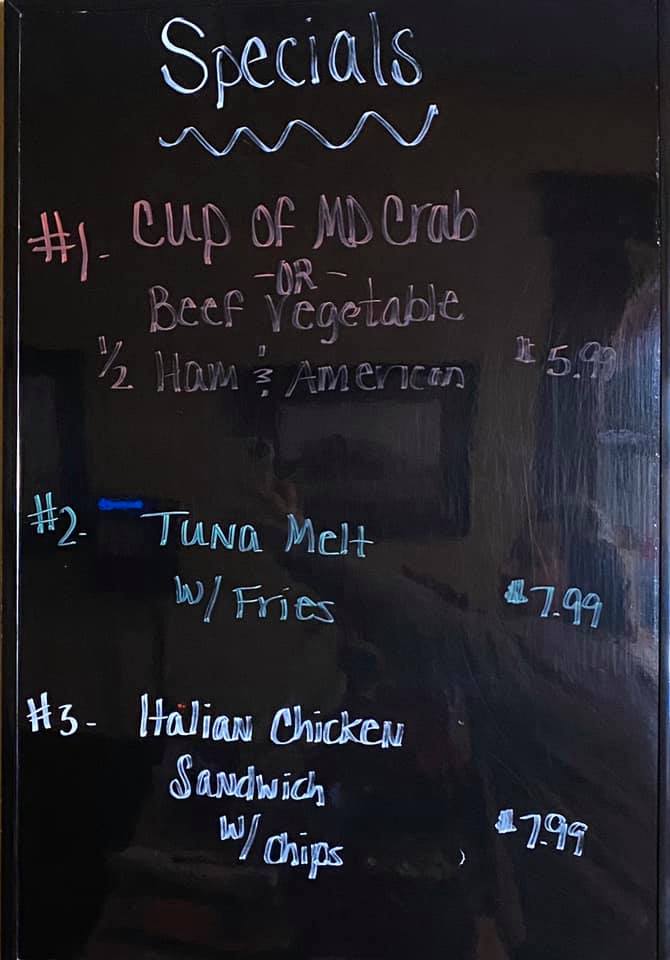 Specials
#1- Cup of MD Crab
-OR-
Beef Vegetable
1/2 Ham & American $5.99
#2- Tuna Melt
w/ Fries $7.99
#3- Italian Chicken
Sandwich
w/ chips $7.99